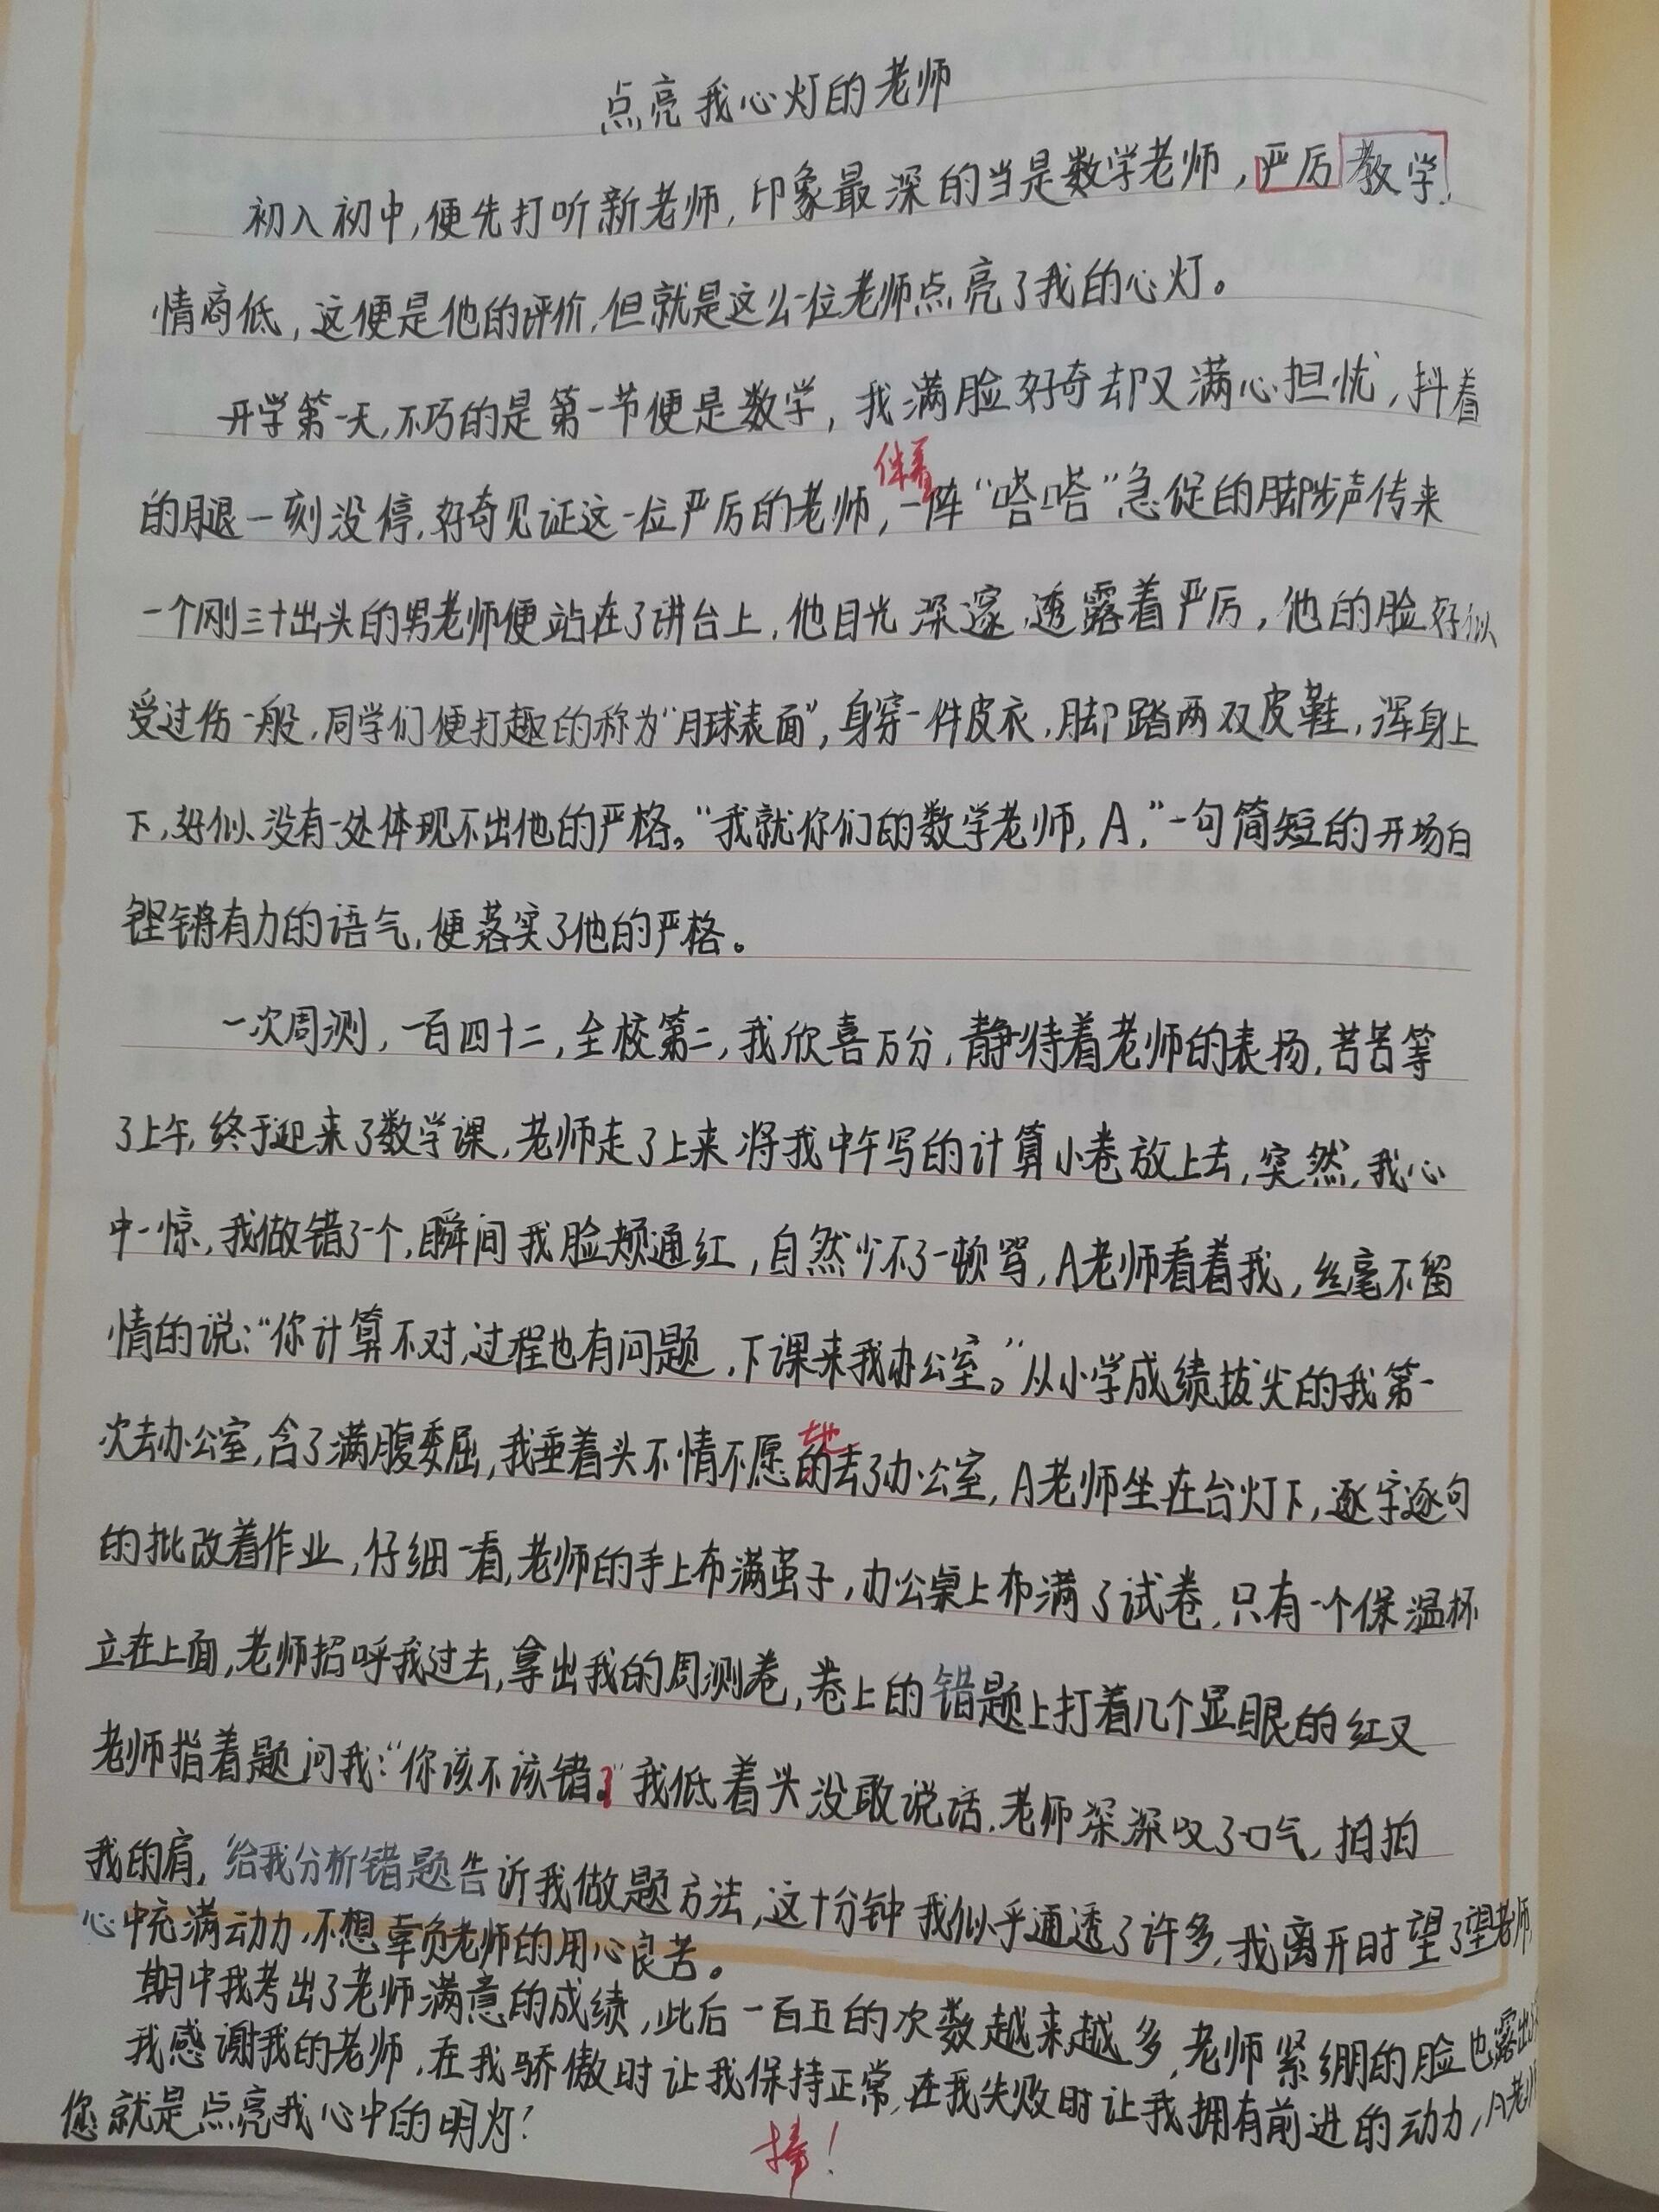 点亮我心灯的老师
初入初中,便先打听新老师,印象最深的当是数学老师,严厉教学,
情商低,这便是他的评价,但就是这么一位老师点亮了我的心灯。
开学第一天,不巧的是第一节便是数学,我满脸好奇却又满心担忧,抖着
伴着
的腿一刻没停,好奇见证这一位严厉的老师,一阵“嗒嗒”急促的脚步声传来
一个刚三十出头的男老师便站在了讲台上,他目光深邃,透露着严厉,他的脸好似
受过伤一般,同学们便打趣的称为“月球表面”,身穿一件皮衣,脚踏两双皮鞋,浑身上
下,好似没有一处体现不出他的严格。“我就你们的数学老师,A,”一句简短的开场白
铿锵有力的语气,便落实了他的严格。
一次周测,一百四十二,全校第二,我欣喜万分,静待着老师的表扬,苦苦等
了上午,终于迎来了数学课,老师走了上来将我中午写的计算小卷放上去,突然,我心
中一惊,我做错了一个,瞬间我脸颊通红,自然少不了一顿骂,A老师看着我,丝毫不留
情的说:“你计算不对,过程也有问题,下课来我办公室。”从小学成绩拔尖的我第一
地
次去办公室,含了满腹委屈,我垂着头不情不愿的去了办公室,A老师坐在台灯下,逐字逐句
的批改着作业,仔细一看,老师的手上布满茧子,办公桌上布满了试卷,只有一个保温杯
立在上面,老师招呼我过去,拿出我的周测卷,卷上的错题上打着几个显眼的红叉
老师指着题问我:“你该不该错?”我低着头没敢说话,老师深深叹了口气,拍拍
我的肩,给我分析错题告诉我做题方法,这十分钟我似乎通透了许多,我离开时望了望老师,
心中充满动力,不想辜负老师的用心良苦。
期中我考出了老师满意的成绩,此后一百五的次数越来越多,老师紧绷的脸也露出
我感谢我的老师,在我骄傲时让我保持正常,在我失败时让我拥有前进的动力,A老师
您就是点亮我心中的明灯!
棒!